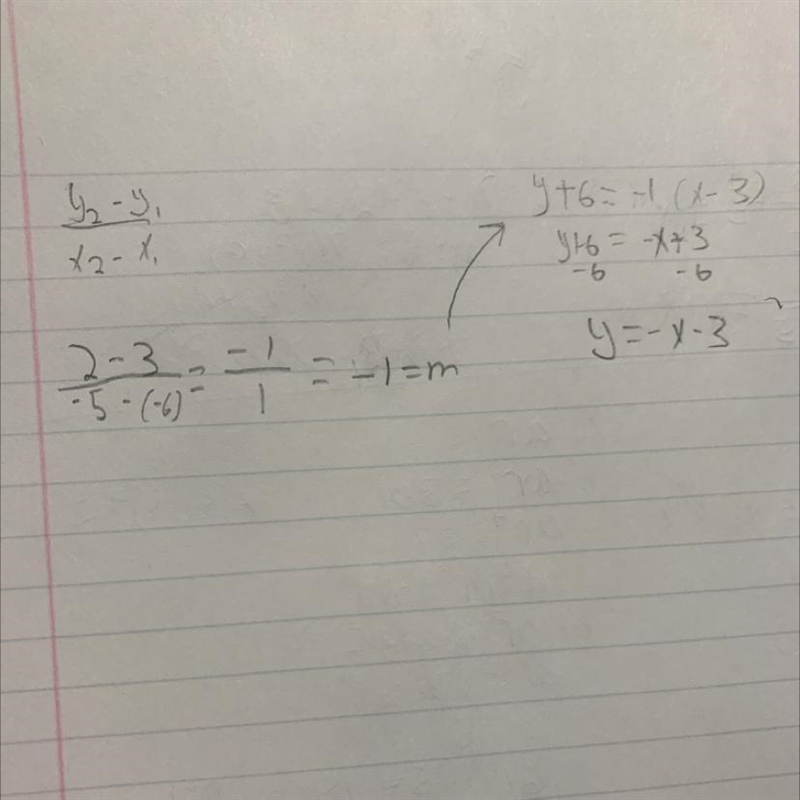 y₂ - y₁
x₂ - x₁
2 - 3 = -1 = -1 = m
-5 - (-6) 1
y + 6 = -1 (x - 3)
y + 6 = -x + 3
-6 -6
y = -x - 3